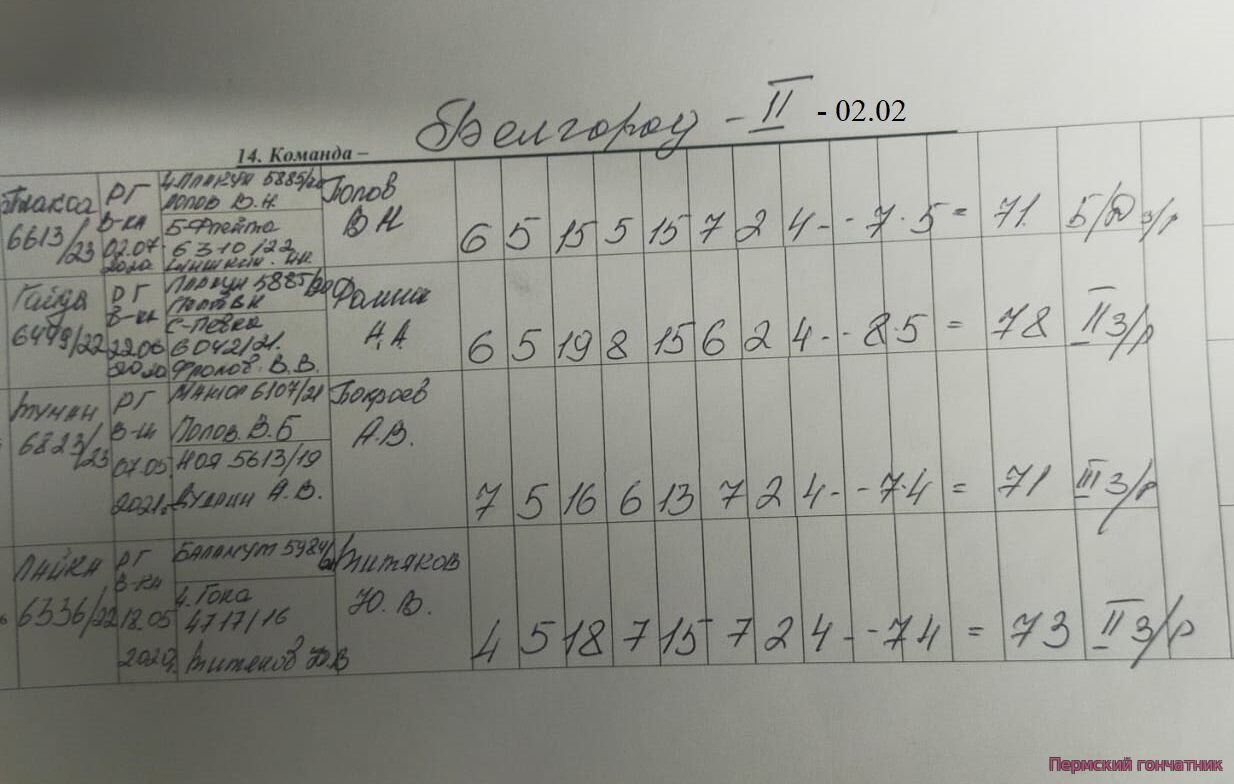 Белгород - II - 02.02
14. Команда –
Плакса РГ Попов
6613/23 В-ка Попов В.Н. В Н
02.07 Б-Флейта
2020 6310/22
6 5 15 5 15 7 2 4 - - 7 · 5 = 71. Б/D з/р
Гайда РГ 5885/20 Фомин
6499/22 В-ка С-Певка А.А.
22.06 6042/21.
2020 Фролов. В.В.
6 5 19 8 15 6 2 4 - - 8 · 5 = 78 II з/р
Туман РГ 6107/21
6823/23 Попов. В.Б А.В.
07.05 Ноя 5613/19
2021. А.В.
7 5 16 6 13 7 2 4 - - 7 · 4 = 71 III з/р
Лайка РГ Баламут Витяков
6336/22 В-ка Ч. Гока Ю. В.
18.05 4717/16
2020
4 5 18 7 15 7 2 4 - - 7 4 = 73 II з/р
Пермский гончатник